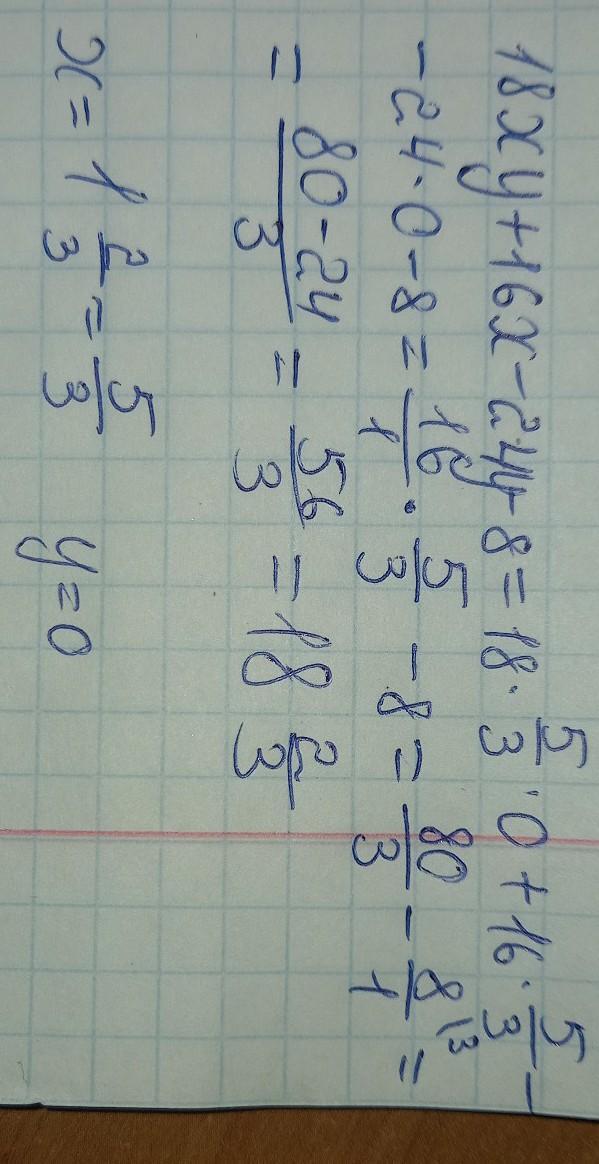 18xy+16x-24y-8=18·5/3·0+16·5/3-
-24·0-8=16/1·5/3-8=80/3-8/1\3=
=80-24/3=56/3=18 2/3
x=1 2/3=5/3 y=0